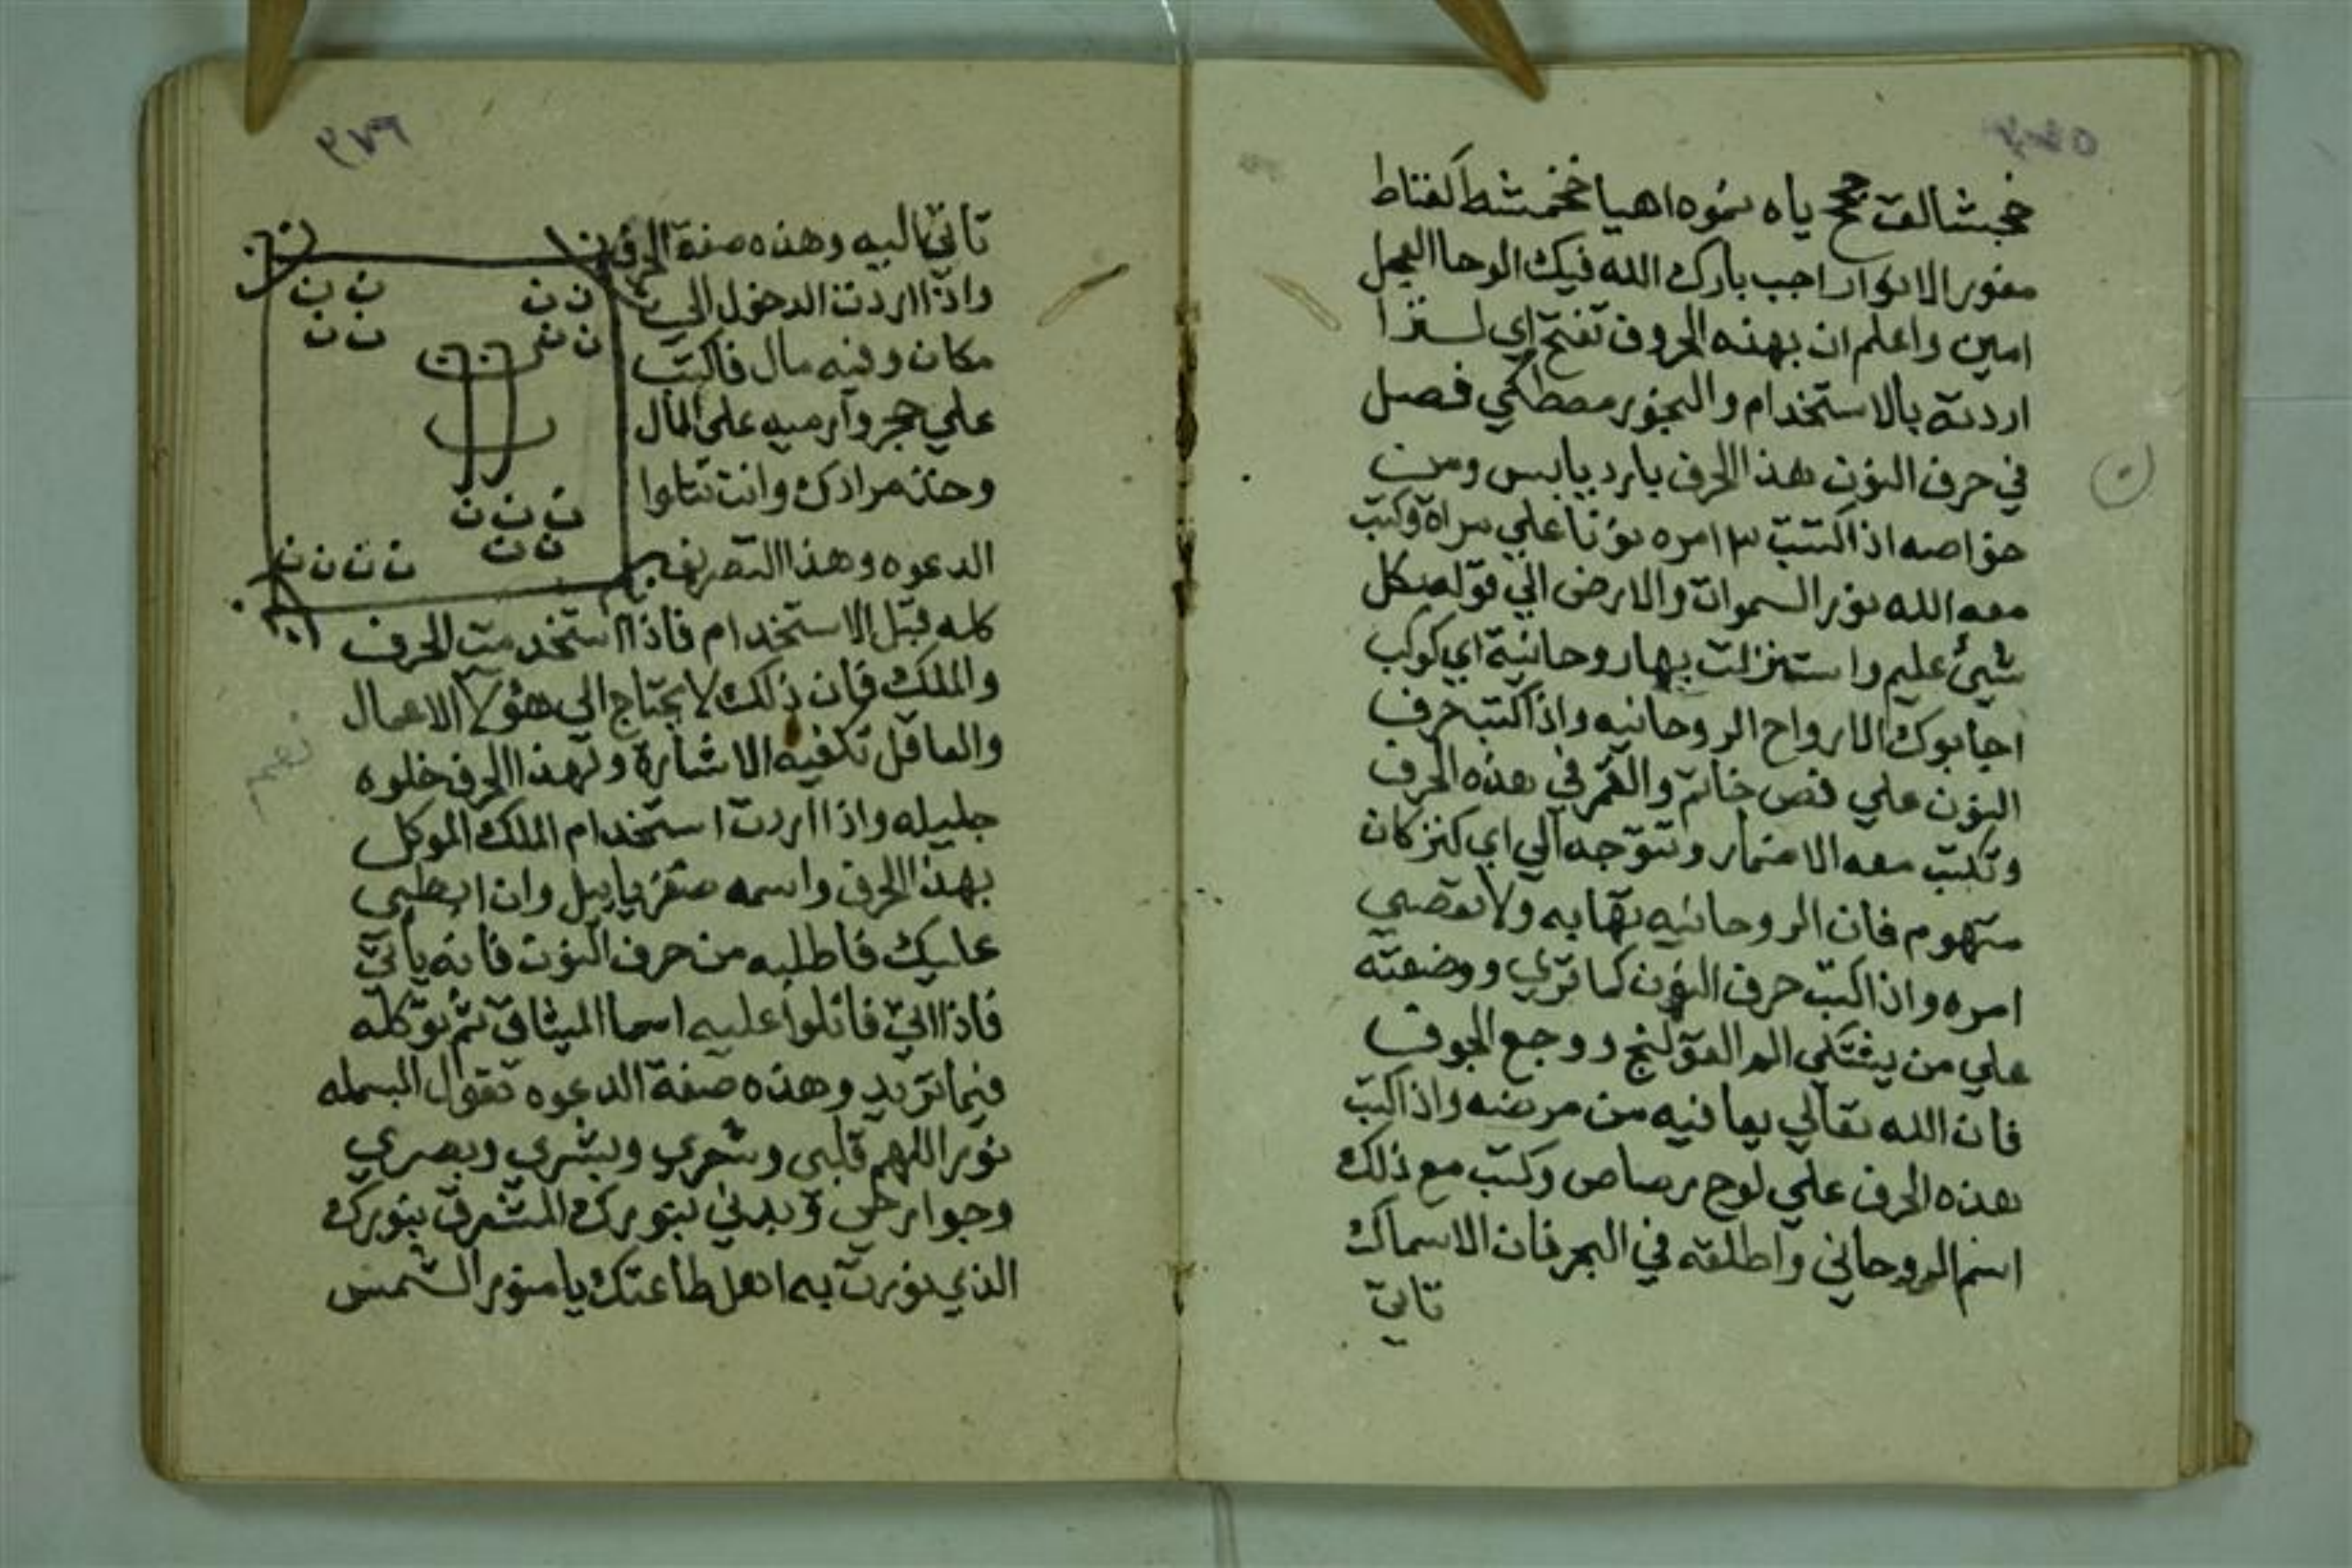 ياه نموه اهيا
منور الانوار اجب بارك الله فيك الوحا العجل
امين واعلم ان بهذه الحروف تفتح اي
اردته بالاستخدام والبخور مصطكي فصل
في حرف النون هذا الحرف بارد يابس ومن
خواصه اذا كتبت امره نونا علي مراة وكتبت
معه الله نور السموات والارض الي قوله بكل
شيئ عليم واستنزلت بها روحانية اي كوكب
اجابوك الارواح الروحانيه واذا كتبت حرف
النون علي فص خاتم والقمر في هذه الحرف
وتكتب معه الاضمار وتتوجه الي اي كنز كان
فان الروحانيه تهابه ولا تعصي
امره واذا كتبت حرف النون كما تري ووضعته
علي من يشتكي الم القولنج ووجع الجوف
فان الله تعالي يعافيه من مرضه واذا كتبت
هذه الحرف علي لوح رصاص وكتبت مع ذلك
اسم الروحاني واطلقه في البحر فان الاسماك
تاتي
٣٧٩
تاتي اليه وهذه صفة الحرف
واذا اردت الدخول الي
مكان وفيه مال فاكتب
علي حجر وارميه علي المال
وخذ مرادك وانت تتلوا
الدعوه وهذا التصريف
كله قبل الاستخدام فاذا استخدمت الحرف
والملك فان ذلك لا يحتاج الي هؤلا الاعمال
والعاقل تكفيه الاشارة ولهذا الحرف خلوه
جليله واذا اردت استخدام الملك الموكل
بهذا الحرف واسمه وان ابطي
عليك فاطلبه من حرف النون فانه ياتي
فاذا اتي فاتلوا عليه اسما الميثاق ثم توكله
فيما تريد وهذه صفة الدعوه تقول البسمله
نور اللهم قلبي وشعري وبشري وبصري
وجوارحي وبدني بنورك المشرق بنورك
الذي نورت به اهل طاعتك يا منور الشمس
ن ن ن ن
ن ن ن ن
ن ن ن
ن ن
ن ن ن ن